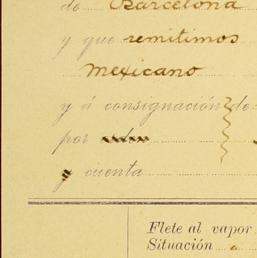 de Barcelona
y que remitimos
mexicano
y á consignación de
por
y cuenta
Flete al vapor
Situación